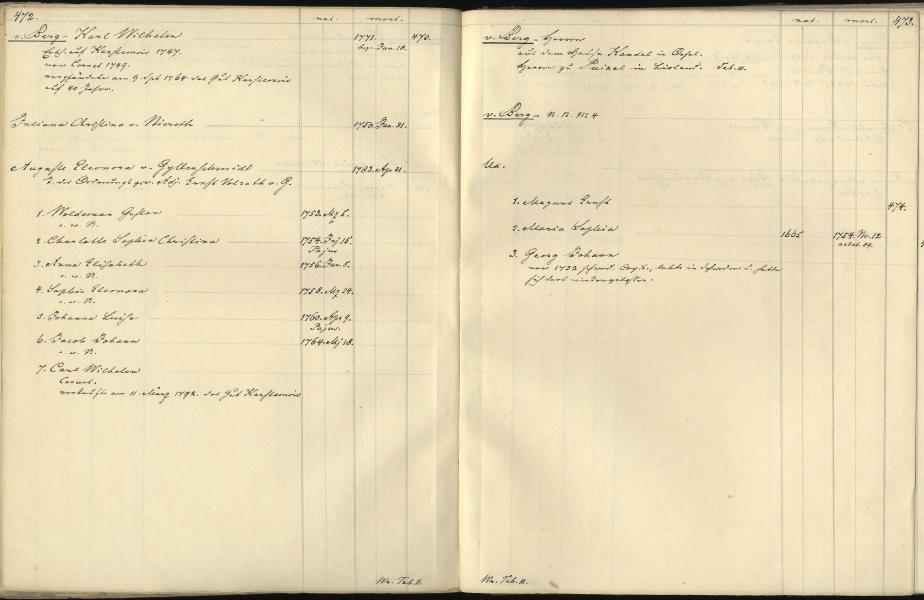 472. nat. mort.
v. Berg - Karl Wilhelm 1771. 470.
Erbh. auf Karstemois 1747. bgr. Jan. 18.
war Cornet 1749.
verpfändete am 9 Spt 1764 das Gut Karstemois
auf 40 Jahre.
Juliana Christina v. Nieroth 1750. Jan. 21.
Auguste Eleonora v. Gyllenschmidt 1783. Ap 21.
T. des Ordnungsger. Adj. Ernst Volrath v. G.
1. Woldemar Gustav 1752. Mz 6.
o. w. N.
2. Charlotte Sophia Christina 1754. Fbj 15.
Pajus
3. Anna Elisabeth 1756. Jan. 8.
o. w. N.
4. Sophia Eleonora 1758. Mz 24.
o. w. N.
5. Johanna Luise 1760. Apr 9.
Pajus.
6. Jacob Johann 1764. Mj 18.
o. w. N.
7. Carl Wilhelm
Cornet.
verkaufte am 11. März 1792. das Gut Karstemois
Wr. Tab. II.
nat. mort. 473.
v. Berg - Herren
aus dem Hause Kandel in Oesel.
Herren zu in Livland. Tab. II.
v. Berg - N. N. № 4
Ux.
1. Magnus Ernst 474.
2. Maria Sophia 1665 1754. Nv. 12
aetat. 89.
3. Georg Johann
war 1732 schwed. Capt., lebte in Schweden u. hatte
sich dort niedergelassen.
Wr. Tab. II.